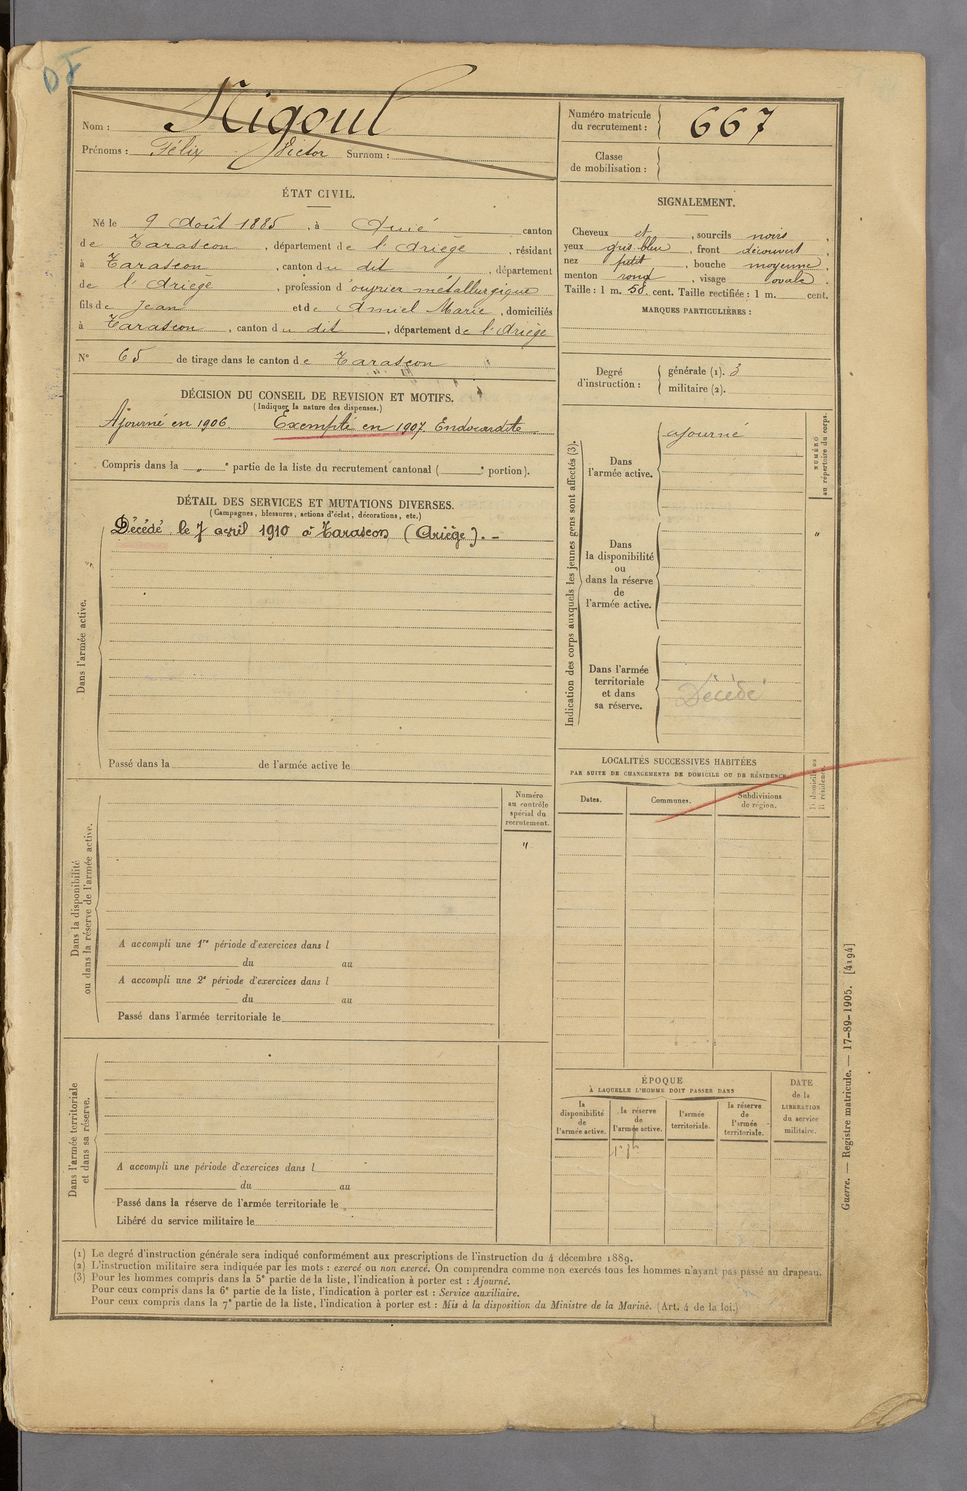 DF
Nom : Nigoul
Prénoms : Félix Victor Surnom :
Numéro matricule du recrutement : 667
Classe de mobilisation :
ÉTAT CIVIL.
Né le 9 Août 1885, à Quié canton
de Tarascon, département de l'Ariège, résidant
à Tarascon, canton du dit, département
de l'Ariège, profession d'ouvrier métallurgique
fils de Jean et de Amiel Marie, domiciliés
à Tarascon, canton du dit, département de l'Ariège
N° 65 de tirage dans le canton de Tarascon
SIGNALEMENT.
Cheveux et, sourcils noirs,
yeux gris bleu, front découvert,
nez petit, bouche moyenne,
menton rond, visage ovale.
Taille : 1 m. 58 cent. Taille rectifiée : 1 m. cent.
MARQUES PARTICULIÈRES :
Degré d'instruction : générale (1). 3
militaire (2).
DÉCISION DU CONSEIL DE REVISION ET MOTIFS.
(Indiquer la nature des dispenses.)
Ajourné en 1906. Exempté en 1907. Endocardite
Compris dans la " e partie de la liste du recrutement cantonal ( e portion).
DÉTAIL DES SERVICES ET MUTATIONS DIVERSES.
(Campagnes, blessures, actions d'éclat, décorations, etc.)
Dans l'armée active.
Décédé le 7 avril 1910 à Tarascon (Ariège). -
Passé dans la de l'armée active le
Indication des corps auxquels les jeunes gens sont affectés (3).
Dans l'armée active.
ajourné
Dans la disponibilité ou dans la réserve de l'armée active.
Dans l'armée territoriale et dans sa réserve.
Décédé
NUMÉRO au répertoire du corps.
"
LOCALITÉS SUCCESSIVES HABITÉES
PAR SUITE DE CHANGEMENTS DE DOMICILE OU DE RÉSIDENCE.
Dates.
Communes.
Subdivisions de région.
Numéro au contrôle spécial du recrutement.
"
Dans la disponibilité ou dans la réserve de l'armée active.
A accompli une 1re période d'exercices dans l
du au
A accompli une 2e période d'exercices dans l
du au
Passé dans l'armée territoriale le
Dans l'armée territoriale et dans sa réserve.
A accompli une période d'exercices dans l
du au
Passé dans la réserve de l'armée territoriale le
Libéré du service militaire le
ÉPOQUE
À LAQUELLE L'HOMME DOIT PASSER DANS
la disponibilité de l'armée active.
la réserve de l'armée active.
l'armée territoriale.
la réserve de l'armée territoriale.
DATE de la LIBÉRATION du service militaire.
Guerre. — Registre matricule. — 17-89-1905. [4194]
(1) Le degré d'instruction générale sera indiqué conformément aux prescriptions de l'instruction du 4 décembre 1889.
(2) L'instruction militaire sera indiquée par les mots : exercé ou non exercé. On comprendra comme non exercés tous les hommes n'ayant pas passé au drapeau.
(3) Pour les hommes compris dans la 5e partie de la liste, l'indication à porter est : Ajourné.
Pour ceux compris dans la 6e partie de la liste, l'indication à porter est : Service auxiliaire.
Pour ceux compris dans la 7e partie de la liste, l'indication à porter est : Mis à la disposition du Ministre de la Marine. (Art. 4 de la loi.)